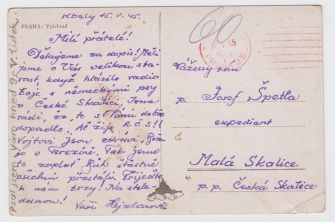 PRAHA: Vyšehrad
Kbely 15. V. 45.
Milí přátelé!
Děkujeme za dopis! Měli
jsme o Vás velikou staro-
st, když hlásilo radio
boje s německými psy
v České Skalici. Jsme
rádi, že to s Vámi dobře
dopadlo. Ať žije R.Č.S!!
Vojtovi jsou zdraví.
v Terezíně. Tak jsme
to zaplať Bůh šťastně
všichni přestáli. Přijeďte
k nám brzy! Na shle-
danou!
Vaši Hejzlarovi
60
Vážený pán
p. Josef Špetla
expedient
Malá Skalice
p. p. Česká Skalice